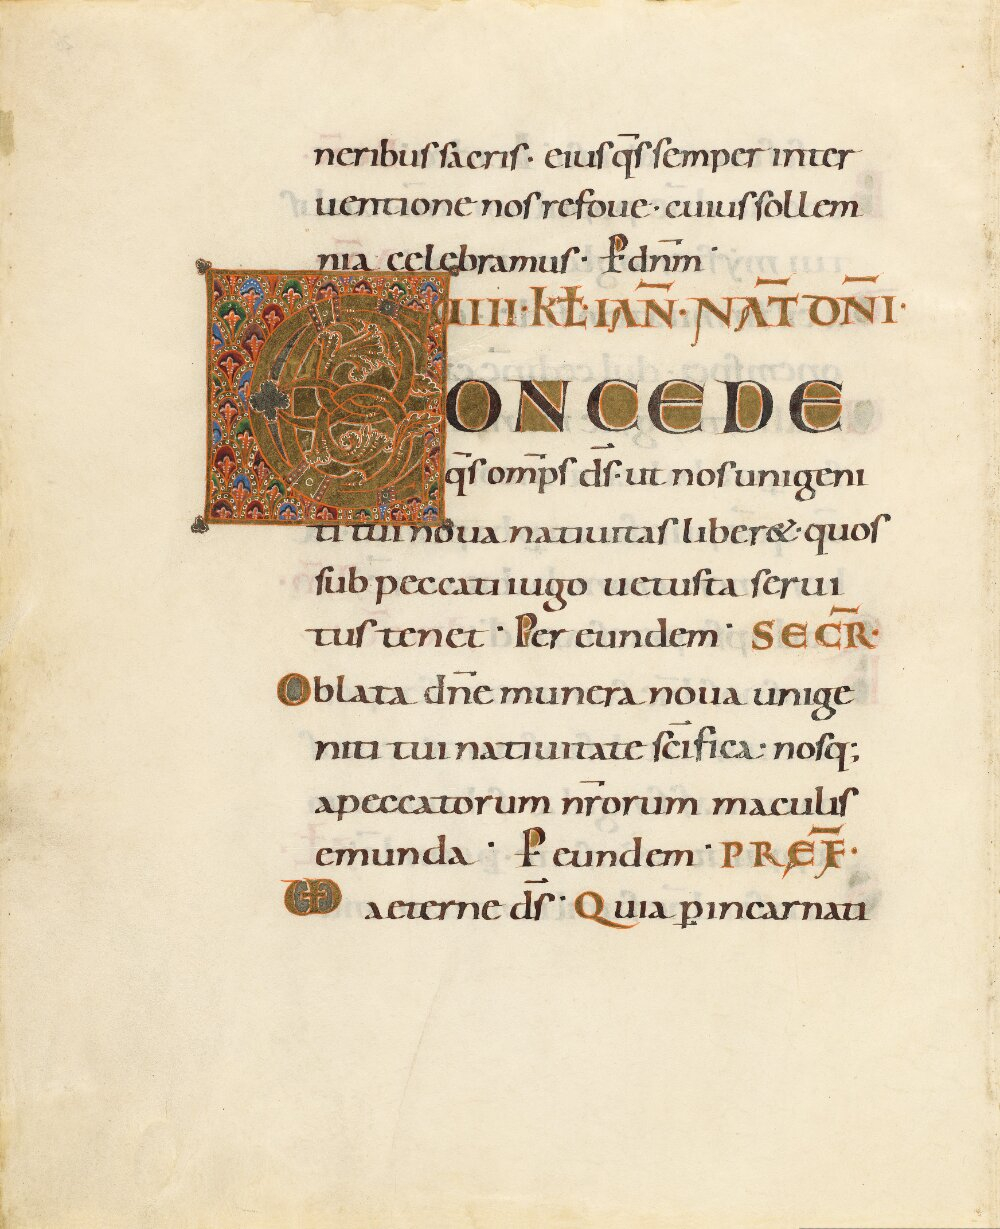 neribus sacris· eiusq̄s semper inter
uentione nos refoue· cuius sollem
nia celebramus· P dn̄m·
IIII·KŁ IAN̄·NAT̄ DN̄I·
CONCEDE
q̄s om̄ps d̄s· ut nos unigeni
ti tui noua natiuitas liber&· quos
sub peccati iugo uetusta serui
tus tenet· Per eundem· SECR̄·
Oblata dn̄e munera noua unige
niti tui natiuitate sc̄ifica· nosq;
a peccatorum nr̄orum maculis
emunda· P eundem· PREF̄·
aeterne d̄s· Quia ꝑ incarnati